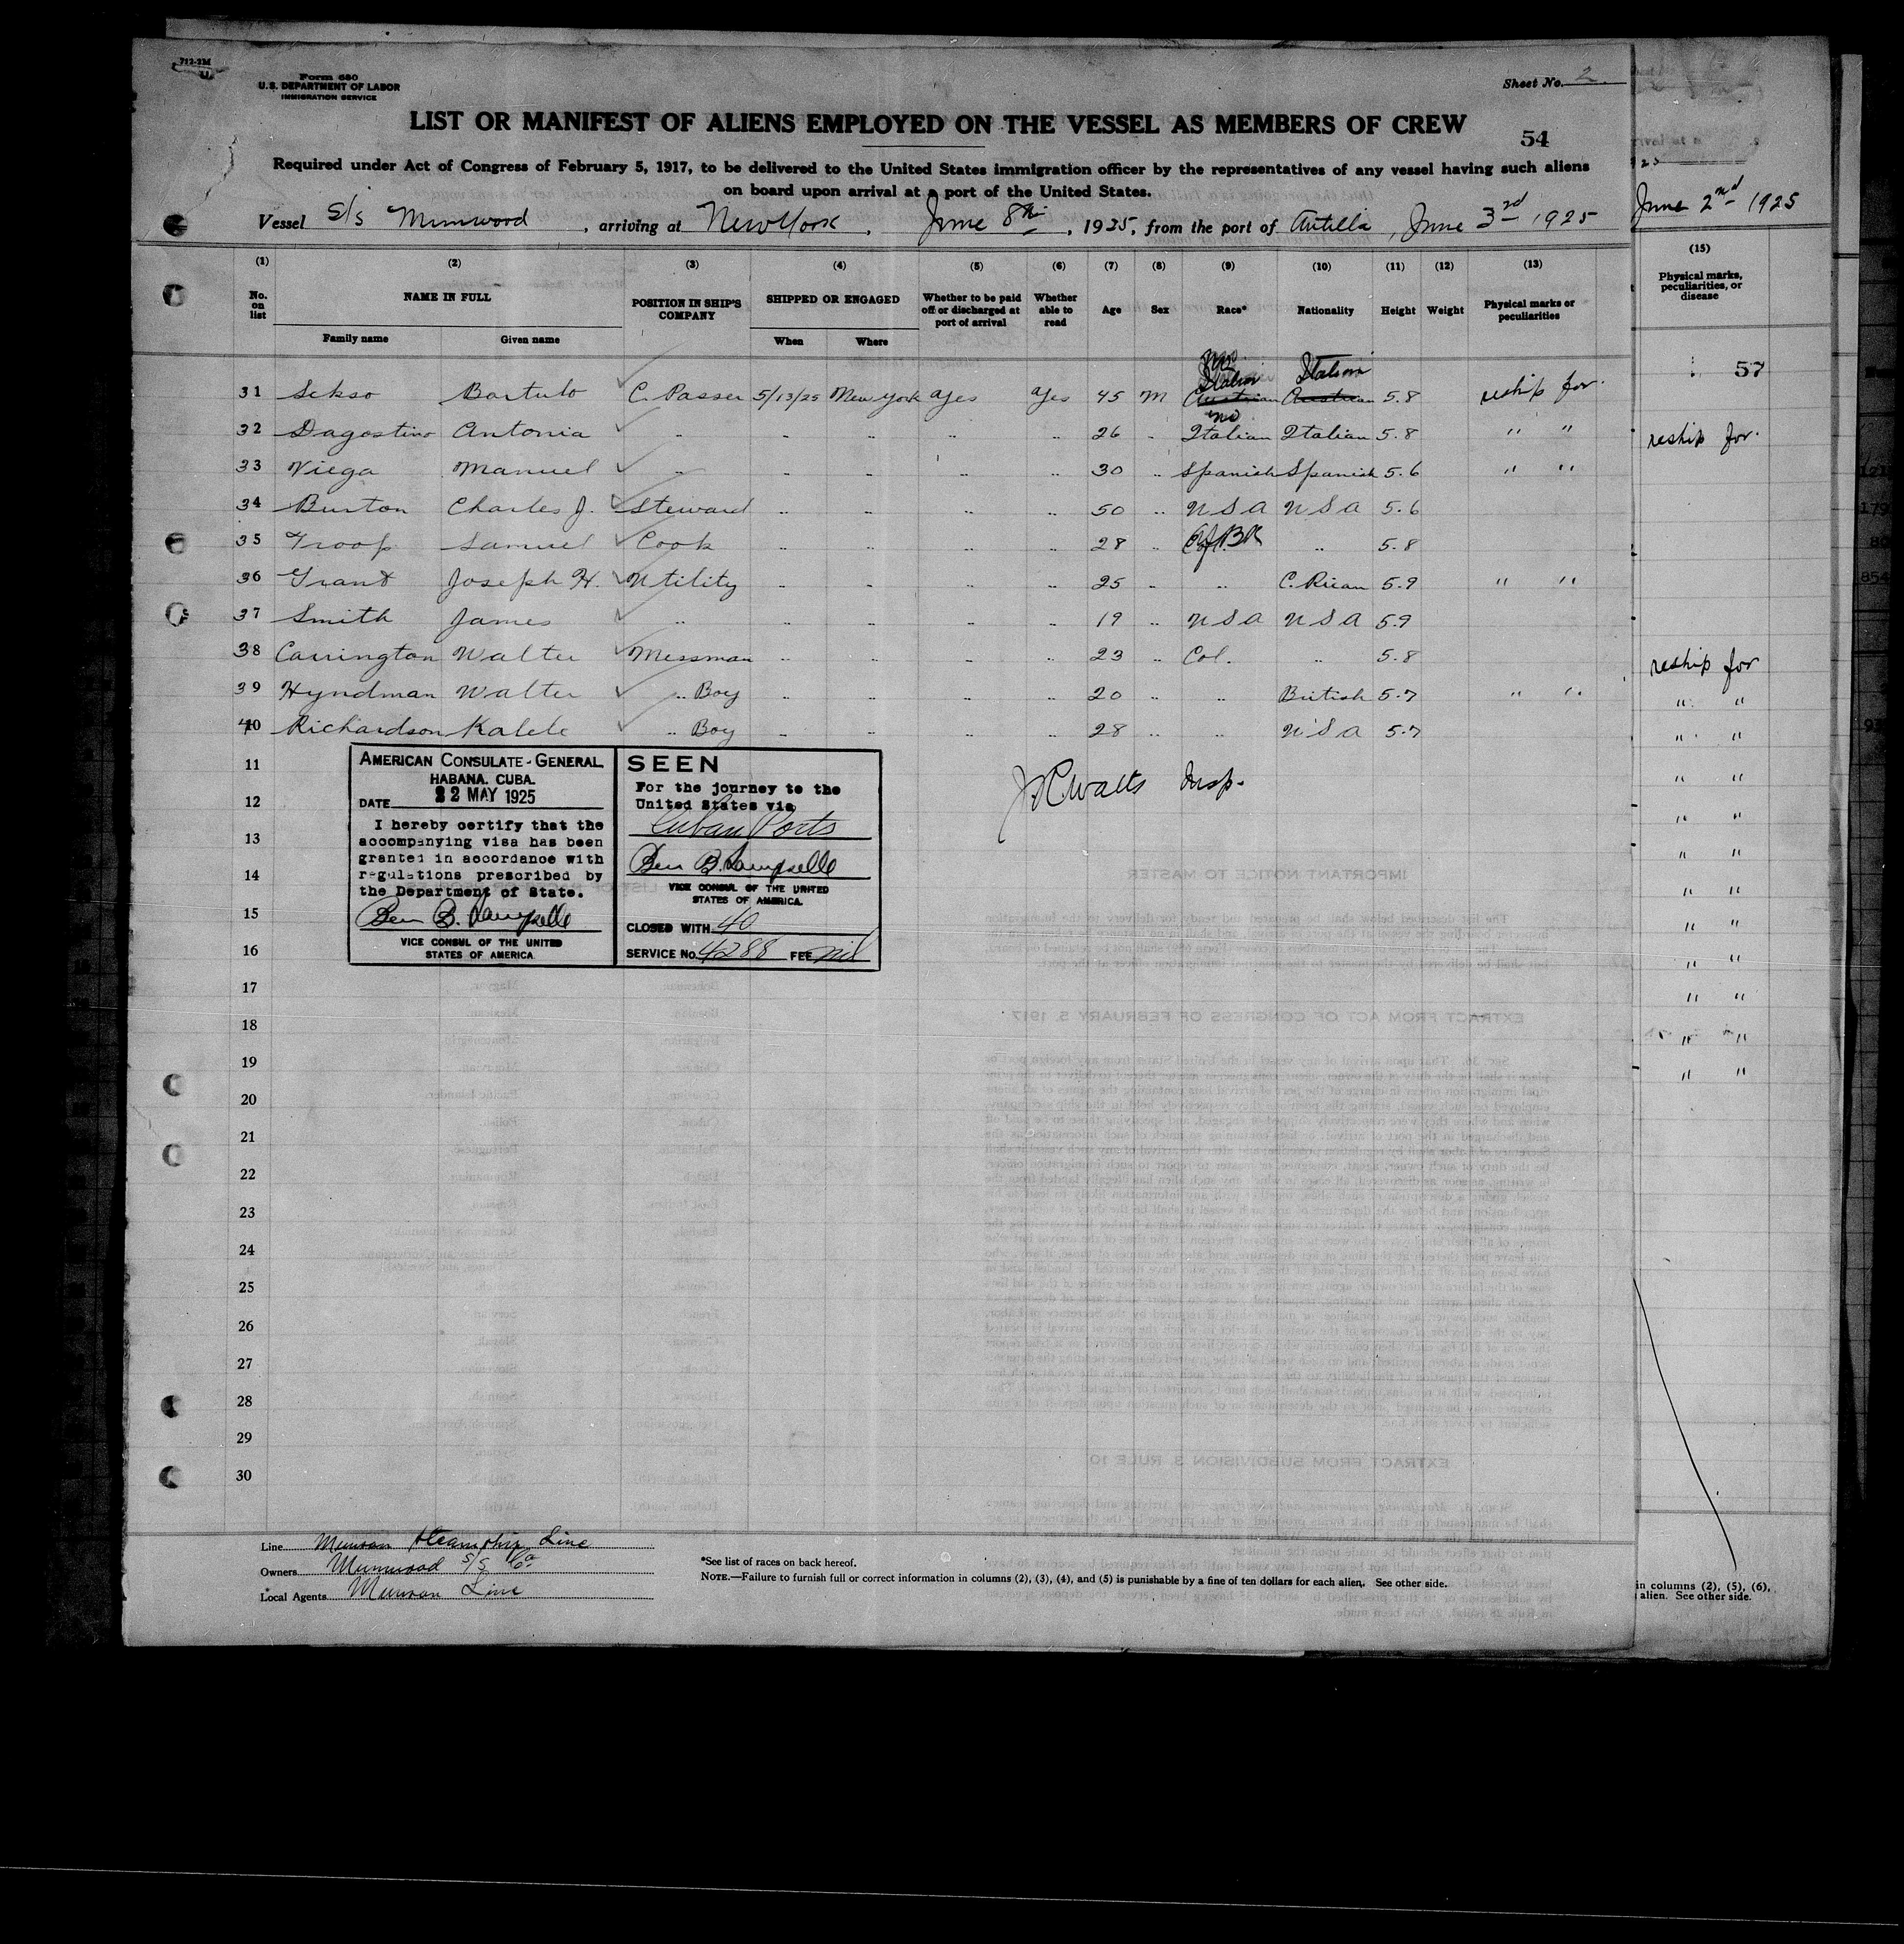 712-2M
Form 680
U. S. DEPARTMENT OF LABOR
IMMIGRATION SERVICE
Sheet No. 2
LIST OR MANIFEST OF ALIENS EMPLOYED ON THE VESSEL AS MEMBERS OF CREW
54
Required under Act of Congress of February 5, 1917, to be delivered to the United States immigration officer by the representatives of any vessel having such aliens
on board upon arrival at a port of the United States.
Vessel S/S Munwood, arriving at New York, June 8th, 1925, from the port of Antilla, June 3rd 1925
June 2nd 1925
(1) (2) (3) (4) (5) (6) (7) (8) (9) (10) (11) (12) (13) (15)
No. on list NAME IN FULL Family name Given name POSITION IN SHIP'S COMPANY SHIPPED OR ENGAGED When Where Whether to be paid off or discharged at port of arrival Whether able to read Age Sex Race* Nationality Height Weight Physical marks or peculiarities
Physical marks, peculiarities, or disease
57
31 Sekso Bartulo C. Passer 5/13/25 New York Yes Yes 45 M Italian Austrian Italian Austrian 5.8 reship for.
32 Dagostino Antonia " " " " " 26 " no Italian Italian 5.8 " "
reship for.
33 Viega Manuel " " " " " 30 " Spanish Spanish 5.6 " "
34 Burton Charles J. Steward " " " " 50 " U S A U S A 5.6
35 Troop Samuel Cook " " " " 28 " " 5.8
36 Grant Joseph H. Utility " " " " 25 " " C. Rican 5.9 " "
37 Smith James " " " " " 19 " U S A U S A 5.9
38 Carrington Walter Messman " " " " 23 " Col. " 5.8
reship for
39 Hyndman Walter " Boy " " " " 20 " " British 5.7 " "
40 Richardson Kalele " Boy " " " " 28 " " U S A 5.7
11
12
13
14
15
16
17
18
19
20
21
22
23
24
25
26
27
28
29
30
AMERICAN CONSULATE-GENERAL
HABANA, CUBA.
DATE 22 MAY 1925
I hereby certify that the
accompanying visa has been
granted in accordance with
regulations prescribed by
the Department of State.
VICE CONSUL OF THE UNITED
STATES OF AMERICA
SEEN
For the journey to the
United States via
Cuban Ports
VICE CONSUL OF THE UNITED
STATES OF AMERICA.
CLOSED WITH 40
SERVICE No. 4288 FEE nil
Watts Insp.
Line Munson Steamship Line
Owners Munwood S/S Co.
Local Agents Munson Line
*See list of races on back hereof.
NOTE.—Failure to furnish full or correct information in columns (2), (3), (4), and (5) is punishable by a fine of ten dollars for each alien. See other side.
in columns (2), (5), (6),
alien. See other side.